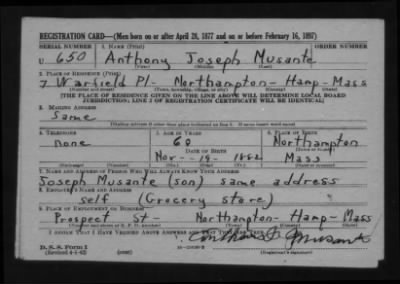 REGISTRATION CARD—(Men born on or after April 28, 1877 and on or before February 16, 1897)
SERIAL NUMBER 1. NAME (Print) ORDER NUMBER
U 650 Anthony Joseph Musante
(First) (Middle) (Last)
2. PLACE OF RESIDENCE (Print)
7 Warfield Pl- Northampton- Hamp- Mass
(Number and street) (Town, township, village, or city) (County) (State)
[THE PLACE OF RESIDENCE GIVEN ON THE LINE ABOVE WILL DETERMINE LOCAL BOARD
JURISDICTION; LINE 2 OF REGISTRATION CERTIFICATE WILL BE IDENTICAL]
3. MAILING ADDRESS
Same
[Mailing address if other than place indicated on line 2. If same insert word same]
4. TELEPHONE 5. AGE IN YEARS 6. PLACE OF BIRTH
none 60 Northampton
DATE OF BIRTH
Nov- 19- 1882 Mass
(Exchange) (Number) (Mo.) (Day) (Yr.) (State or country)
7. NAME AND ADDRESS OF PERSON WHO WILL ALWAYS KNOW YOUR ADDRESS
Joseph Musante (son) same address
8. EMPLOYER'S NAME AND ADDRESS
self (Grocery store)
9. PLACE OF EMPLOYMENT OR BUSINESS
Prospect St- Northampton- Hamp- Mass
(Number and street or R. F. D. number) (Town) (County) (State)
I AFFIRM THAT I HAVE VERIFIED ABOVE ANSWERS AND THAT THEY ARE TRUE.
D. S. S. Form 1
(Revised 4-1-42) (over) (Registrant's signature)